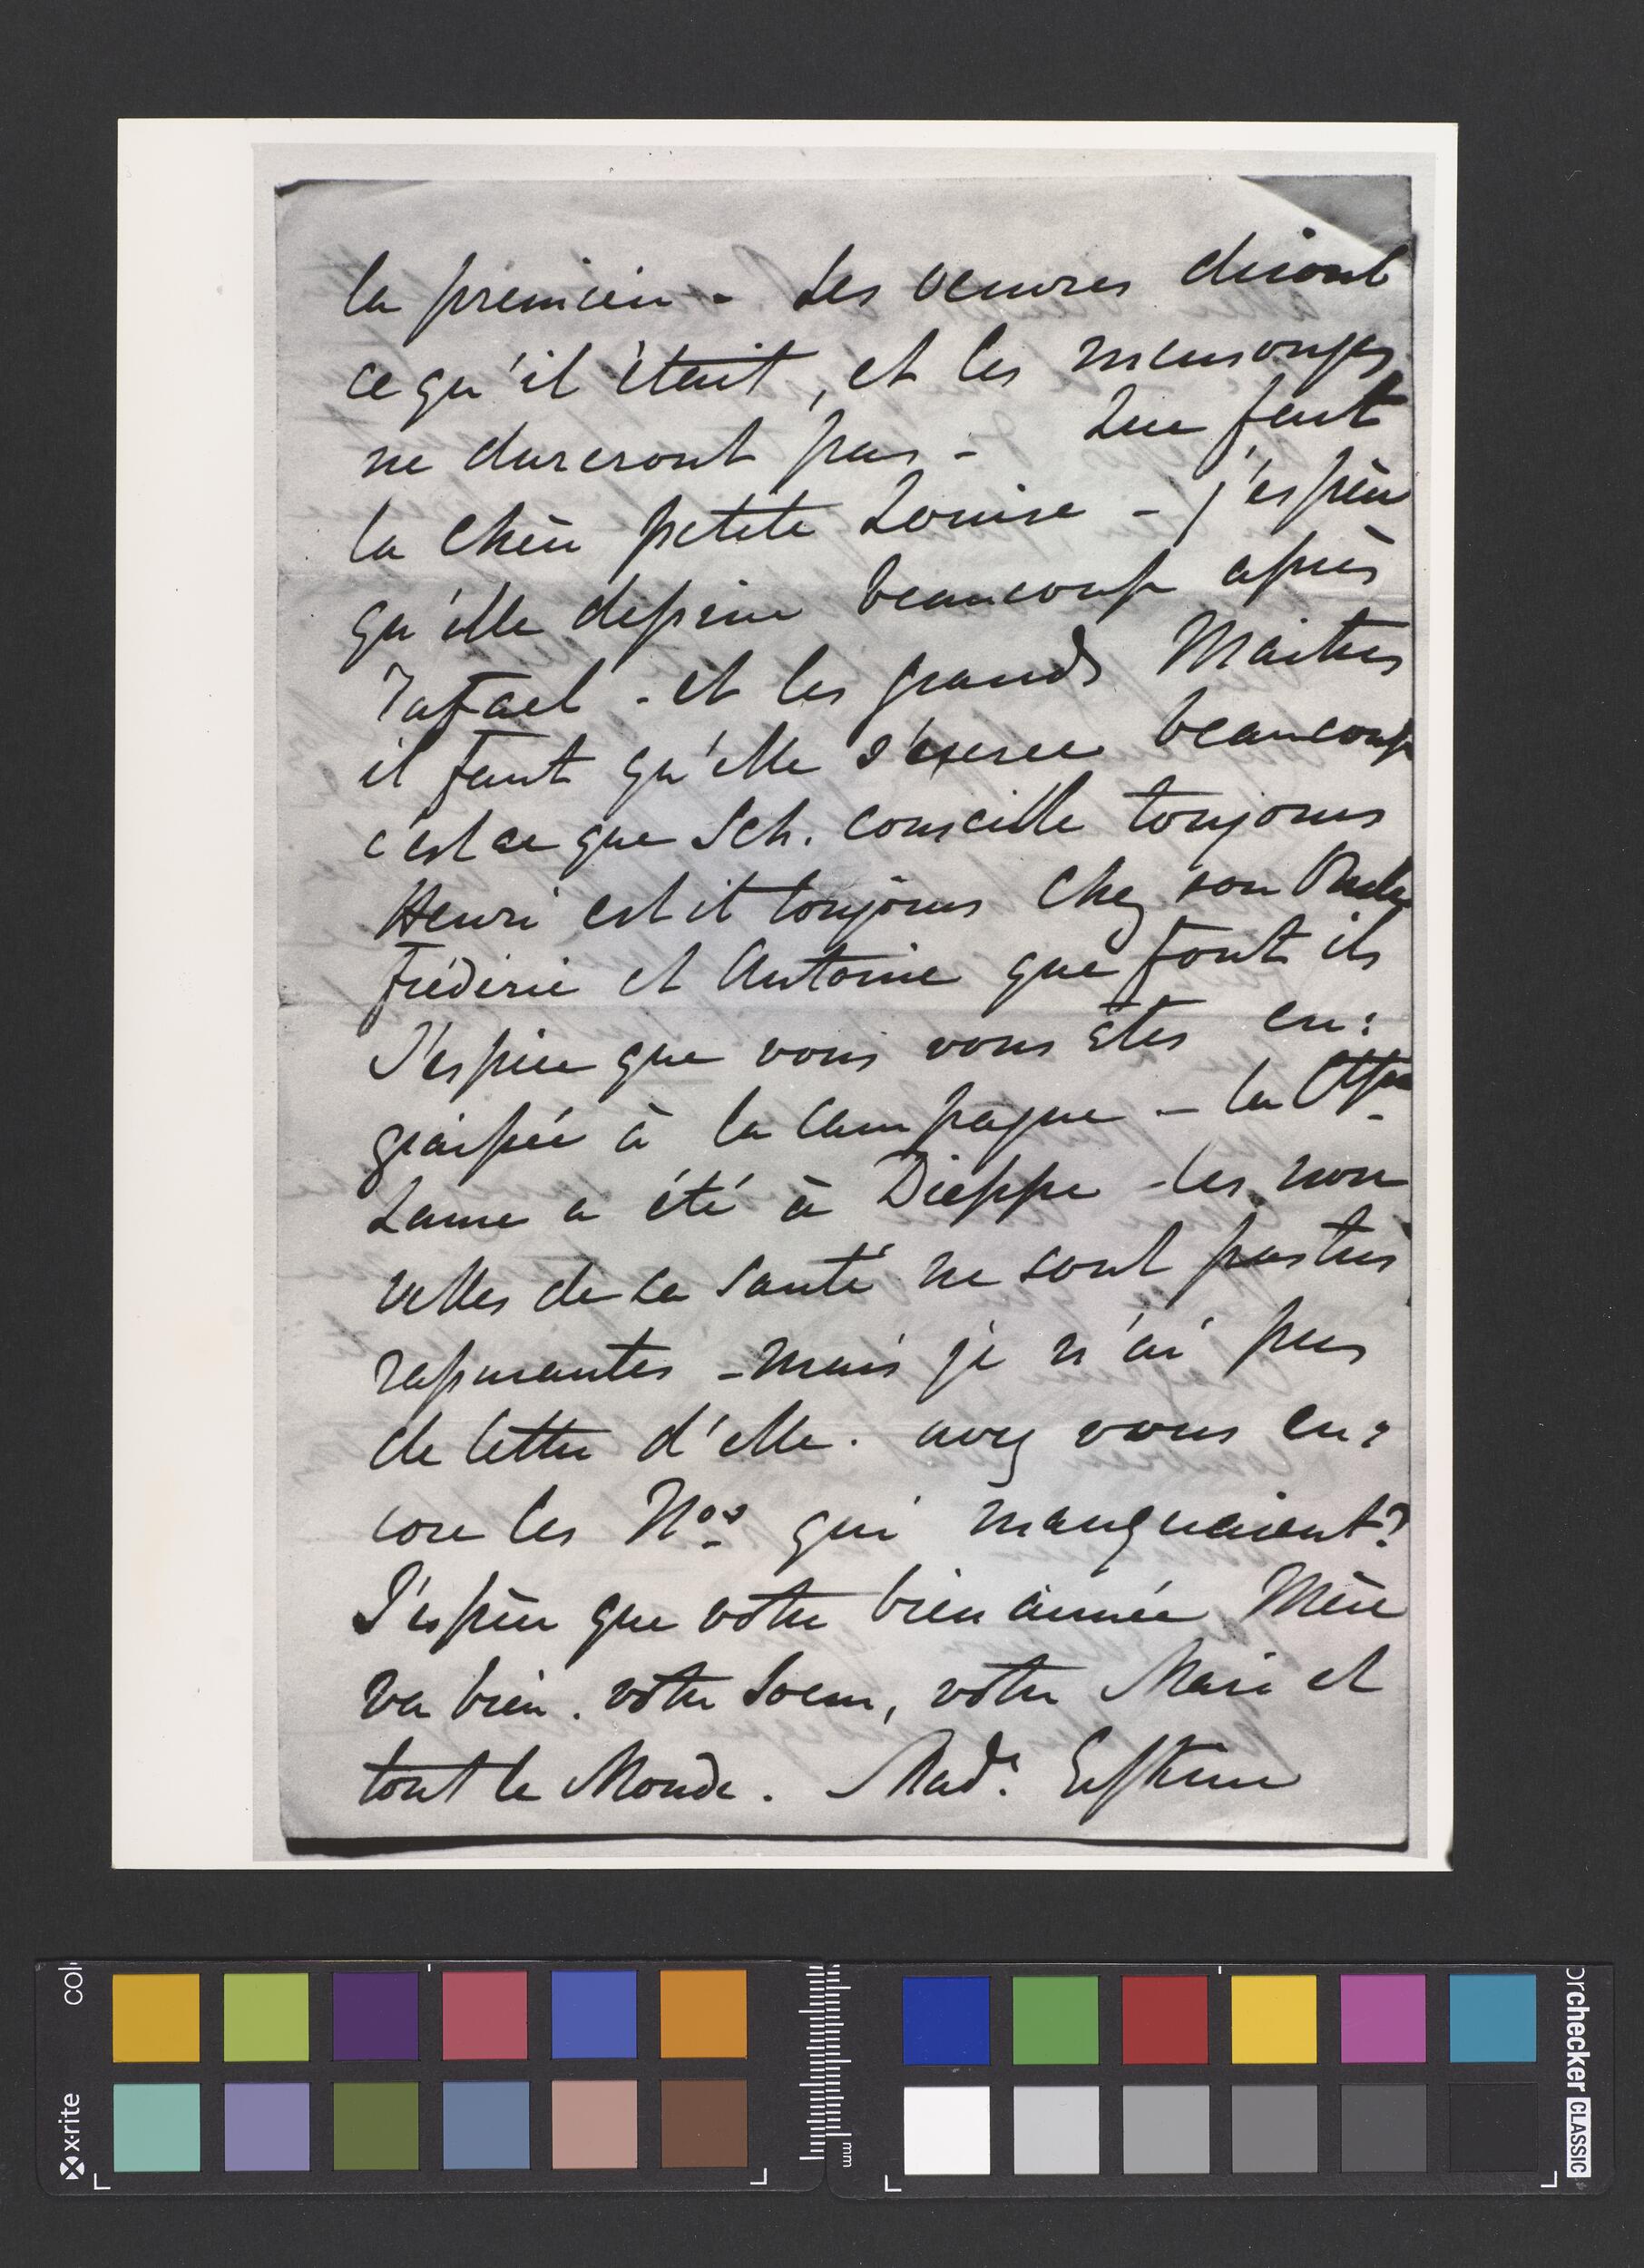 la première - Les oeuvres diront
ce qu'il était, et les mensonges
ne dureront pas - Que fait
la chère petite Louise - j'espère
qu'elle dessine beaucoup après
Rafael - et les grands Maitres
il faut qu'elle s'exerce beaucoup
c'est ce que Sch. conseille toujours
Henri est il toujours chez son Oncle
Frédéric et Antoine que font ils
J'espère que vous vous êtes en:
graissée à la Campagne - la Ctsse
Laure a été à Dieppe - les nou
velles de sa Santé ne sont pas très
rassurantes - mais je n'ai pas
de lettre d'elle. avez vous en:
core les Nos qui manquaient?
J'espère que votre bien aimée Mère
va bien. votre Soeur, votre Mari et
tout le Monde. Made.
x-rite
colorchecker CLASSIC
mm